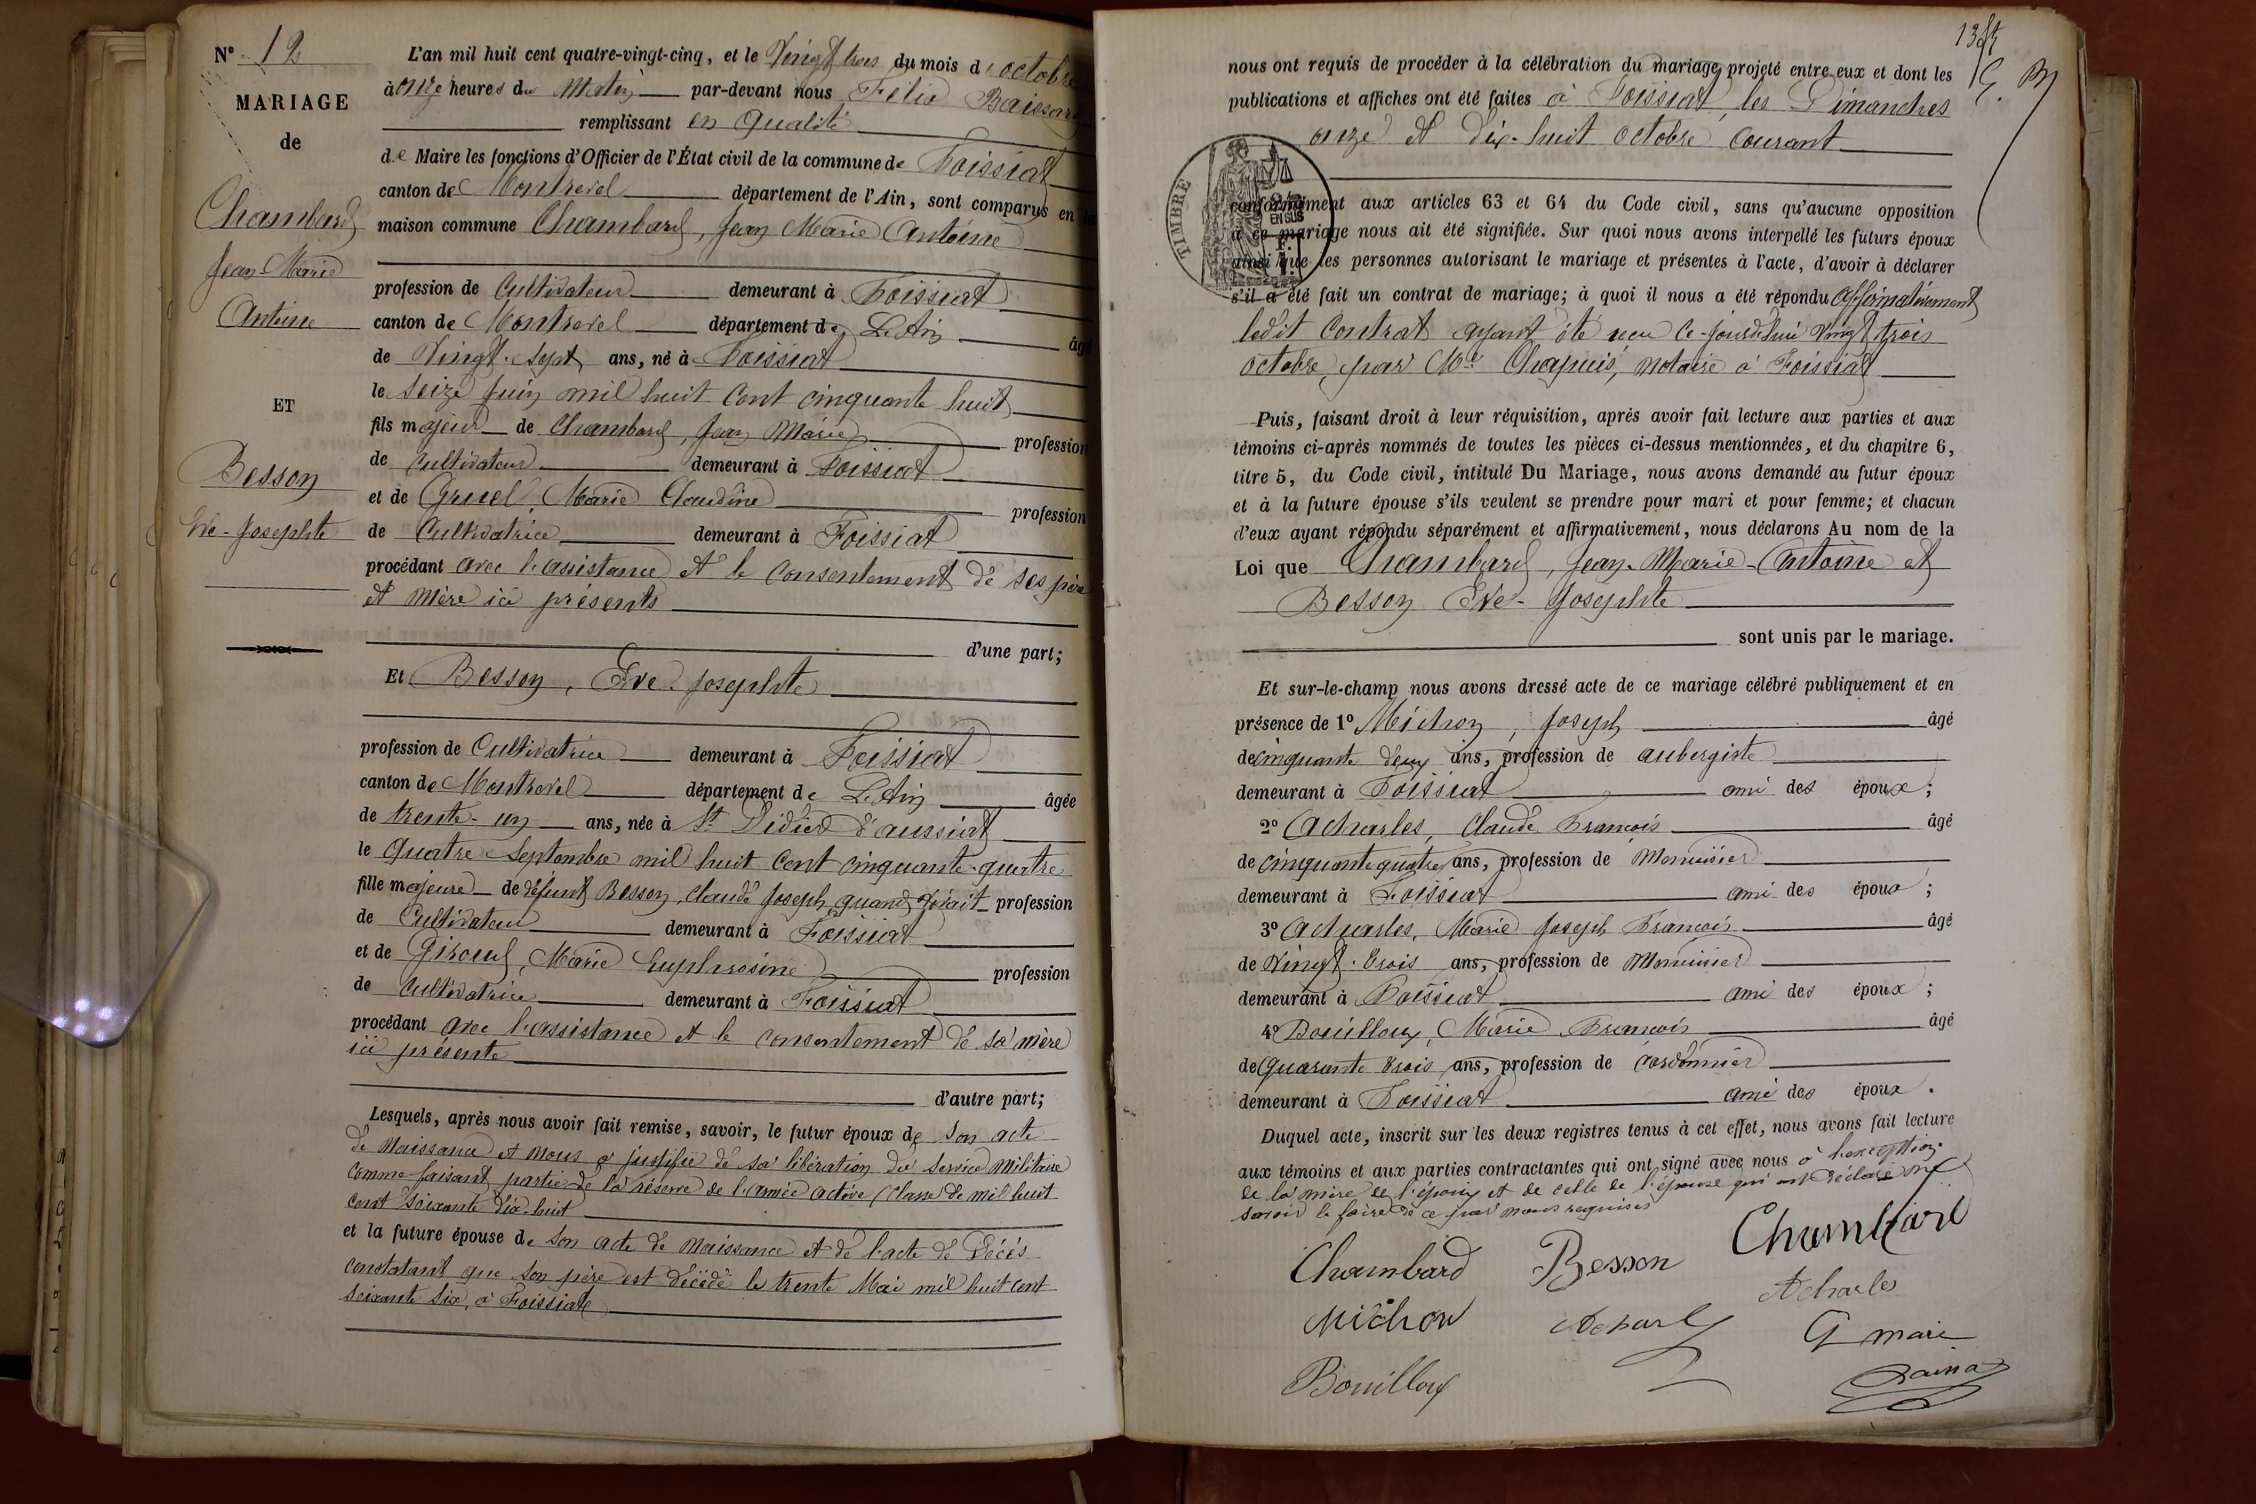 N° 12
MARIAGE
de
Chambard
Jean-Marie
Antoine
ET
Besson
Eve-Josephte
L'an mil huit cent quatre-vingt-cinq, et le Vingt trois du mois d'octobre
à onze heures du Matin par-devant nous Félix
remplissant en qualité
de Maire les fonctions d'Officier de l'État civil de la commune de Foissiat
canton de Montrevel département de l'Ain, sont comparus en
maison commune Chambard, Jean Marie Antoine
profession de Cultivateur demeurant à Foissiat
canton de Montrevel département de L'Ain âgé
de Vingt-sept ans, né à Foissiat
le seize juin mil huit cent cinquante huit
fils majeur de Chambard, Jean Marie profession
de Cultivateur demeurant à Foissiat
et de Gruel, Marie Claudine profession
de Cultivatrice demeurant à Foissiat
procédant avec l'assistance et le consentement de ses père
et mère ici présents
d'une part;
Et Besson, Eve-Josephte
profession de Cultivatrice demeurant à Foissiat
canton de Montrevel département de L'Ain âgée
de trente-un ans, née à St Didier d'aussiat
le quatre Septembre mil huit cent cinquante-quatre
fille majeure de défunt Besson, Claude Joseph, quand vivait profession
de Cultivateur demeurant à Foissiat
et de Giroud, Marie Euphrosine profession
de Cultivatrice demeurant à Foissiat
procédant avec l'assistance et le consentement de sa mère
ici présente
d'autre part;
Lesquels, après nous avoir fait remise, savoir, le futur époux de son acte
de Naissance et nous a justifié de sa libération du service militaire
comme faisant partie de la réserve de l'armée active (Classe de mil huit
cent soixante dix-huit
et la future épouse de son acte de Naissance et de l'acte de Décès
constatant que son père est décédé le trente Mai mil huit cent
soixante six, à Foissiat
nous ont requis de procéder à la célébration du mariage projeté entre eux et dont les
publications et affiches ont été faites à Foissiat, les Dimanches
onze et dix-huit octobre courant
TIMBRE
EN SUS
conformément aux articles 63 et 64 du Code civil, sans qu'aucune opposition
à ce mariage nous ait été signifiée. Sur quoi nous avons interpellé les futurs époux
ainsi que les personnes autorisant le mariage et présentes à l'acte, d'avoir à déclarer
s'il a été fait un contrat de mariage; à quoi il nous a été répondu affirmativement
ledit Contrat ayant été reçu ce-jourd'hui vingt trois
octobre, par Me Chapuis, notaire à Foissiat
Puis, faisant droit à leur réquisition, après avoir fait lecture aux parties et aux
témoins ci-après nommés de toutes les pièces ci-dessus mentionnées, et du chapitre 6,
titre 5, du Code civil, intitulé Du Mariage, nous avons demandé au futur époux
et à la future épouse s'ils veulent se prendre pour mari et pour femme; et chacun
d'eux ayant répondu séparément et affirmativement, nous déclarons Au nom de la
Loi que Chambard, Jean-Marie-Antoine et
Besson Eve-Josephte
sont unis par le mariage.
Et sur-le-champ nous avons dressé acte de ce mariage célébré publiquement et en
présence de 1° Michon, Joseph âgé
de cinquante deux ans, profession de aubergiste
demeurant à Foissiat ami des époux;
2° Acharles, Claude François âgé
de cinquante quatre ans, profession de Menuisier
demeurant à Foissiat ami des époux;
3° Acharles, Marie Joseph François âgé
de Vingt-trois ans, profession de Menuisier
demeurant à Foissiat ami des époux;
4° Bouilloux, Marie François âgé
de Quarante trois ans, profession de Cordonnier
demeurant à Foissiat ami des époux.
Duquel acte, inscrit sur les deux registres tenus à cet effet, nous avons fait lecture
aux témoins et aux parties contractantes qui ont signé avec nous à l'exception
de la mère de l'époux et de celle de l'épouse qui ont déclaré ne
savoir le faire de ce par nous requises
Chambard Besson Chambard
Michon Acharles Acharles
Bouilloux